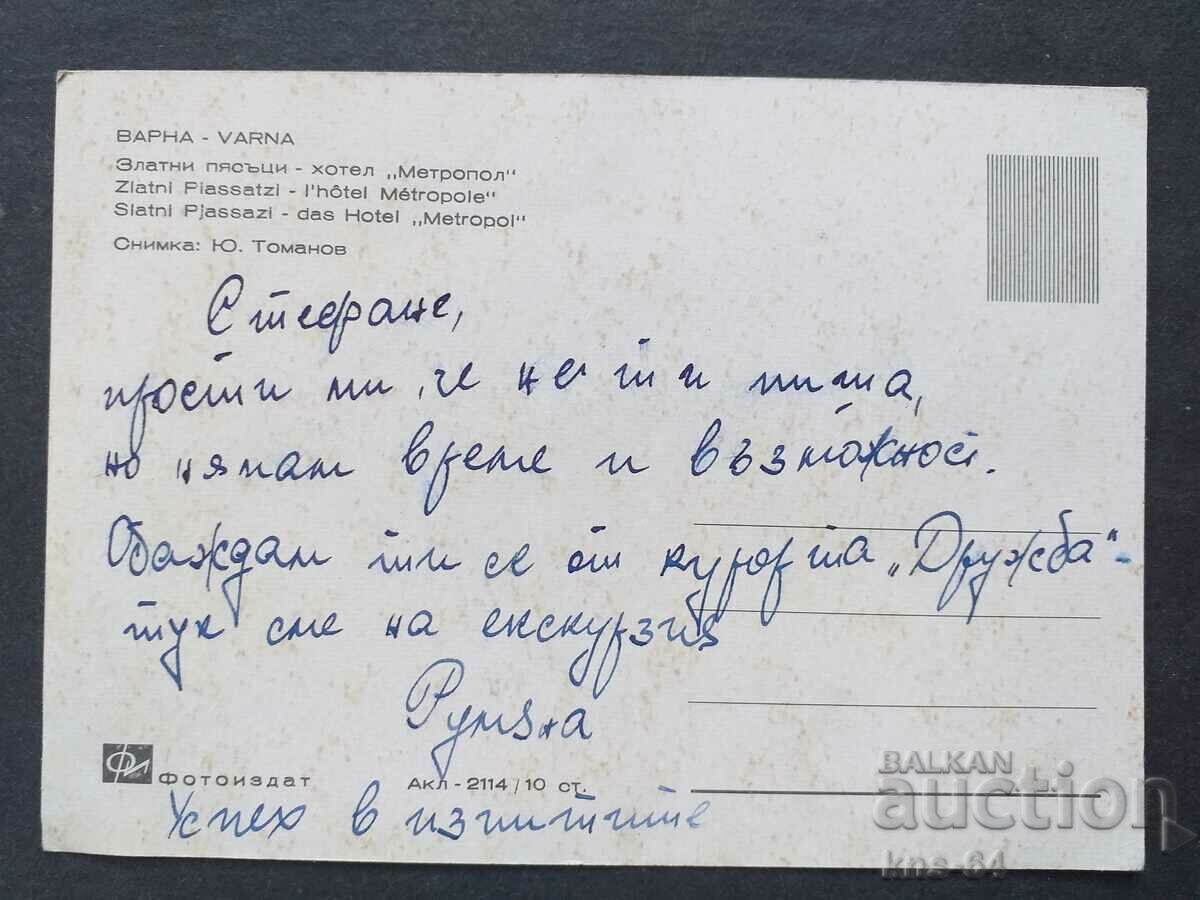 ВАРНА - VARNA
Златни пясъци - хотел „Метропол“
Zlatni Piassatzi - l'hôtel Métropole“
Slatni Pjassazi - das Hotel „Metropol“
Снимка: Ю. Томанов
Стефане,
прости ми, че не ти пиша,
но нямам време и възможност.
Обаждам ти се от курорта „Дружба“ -
тук сме на екскурзия
Румяна
ФИ Фотоиздат Акл - 2114 / 10 ст.
Успех в изпитите
BALKAN
auction
kns-64